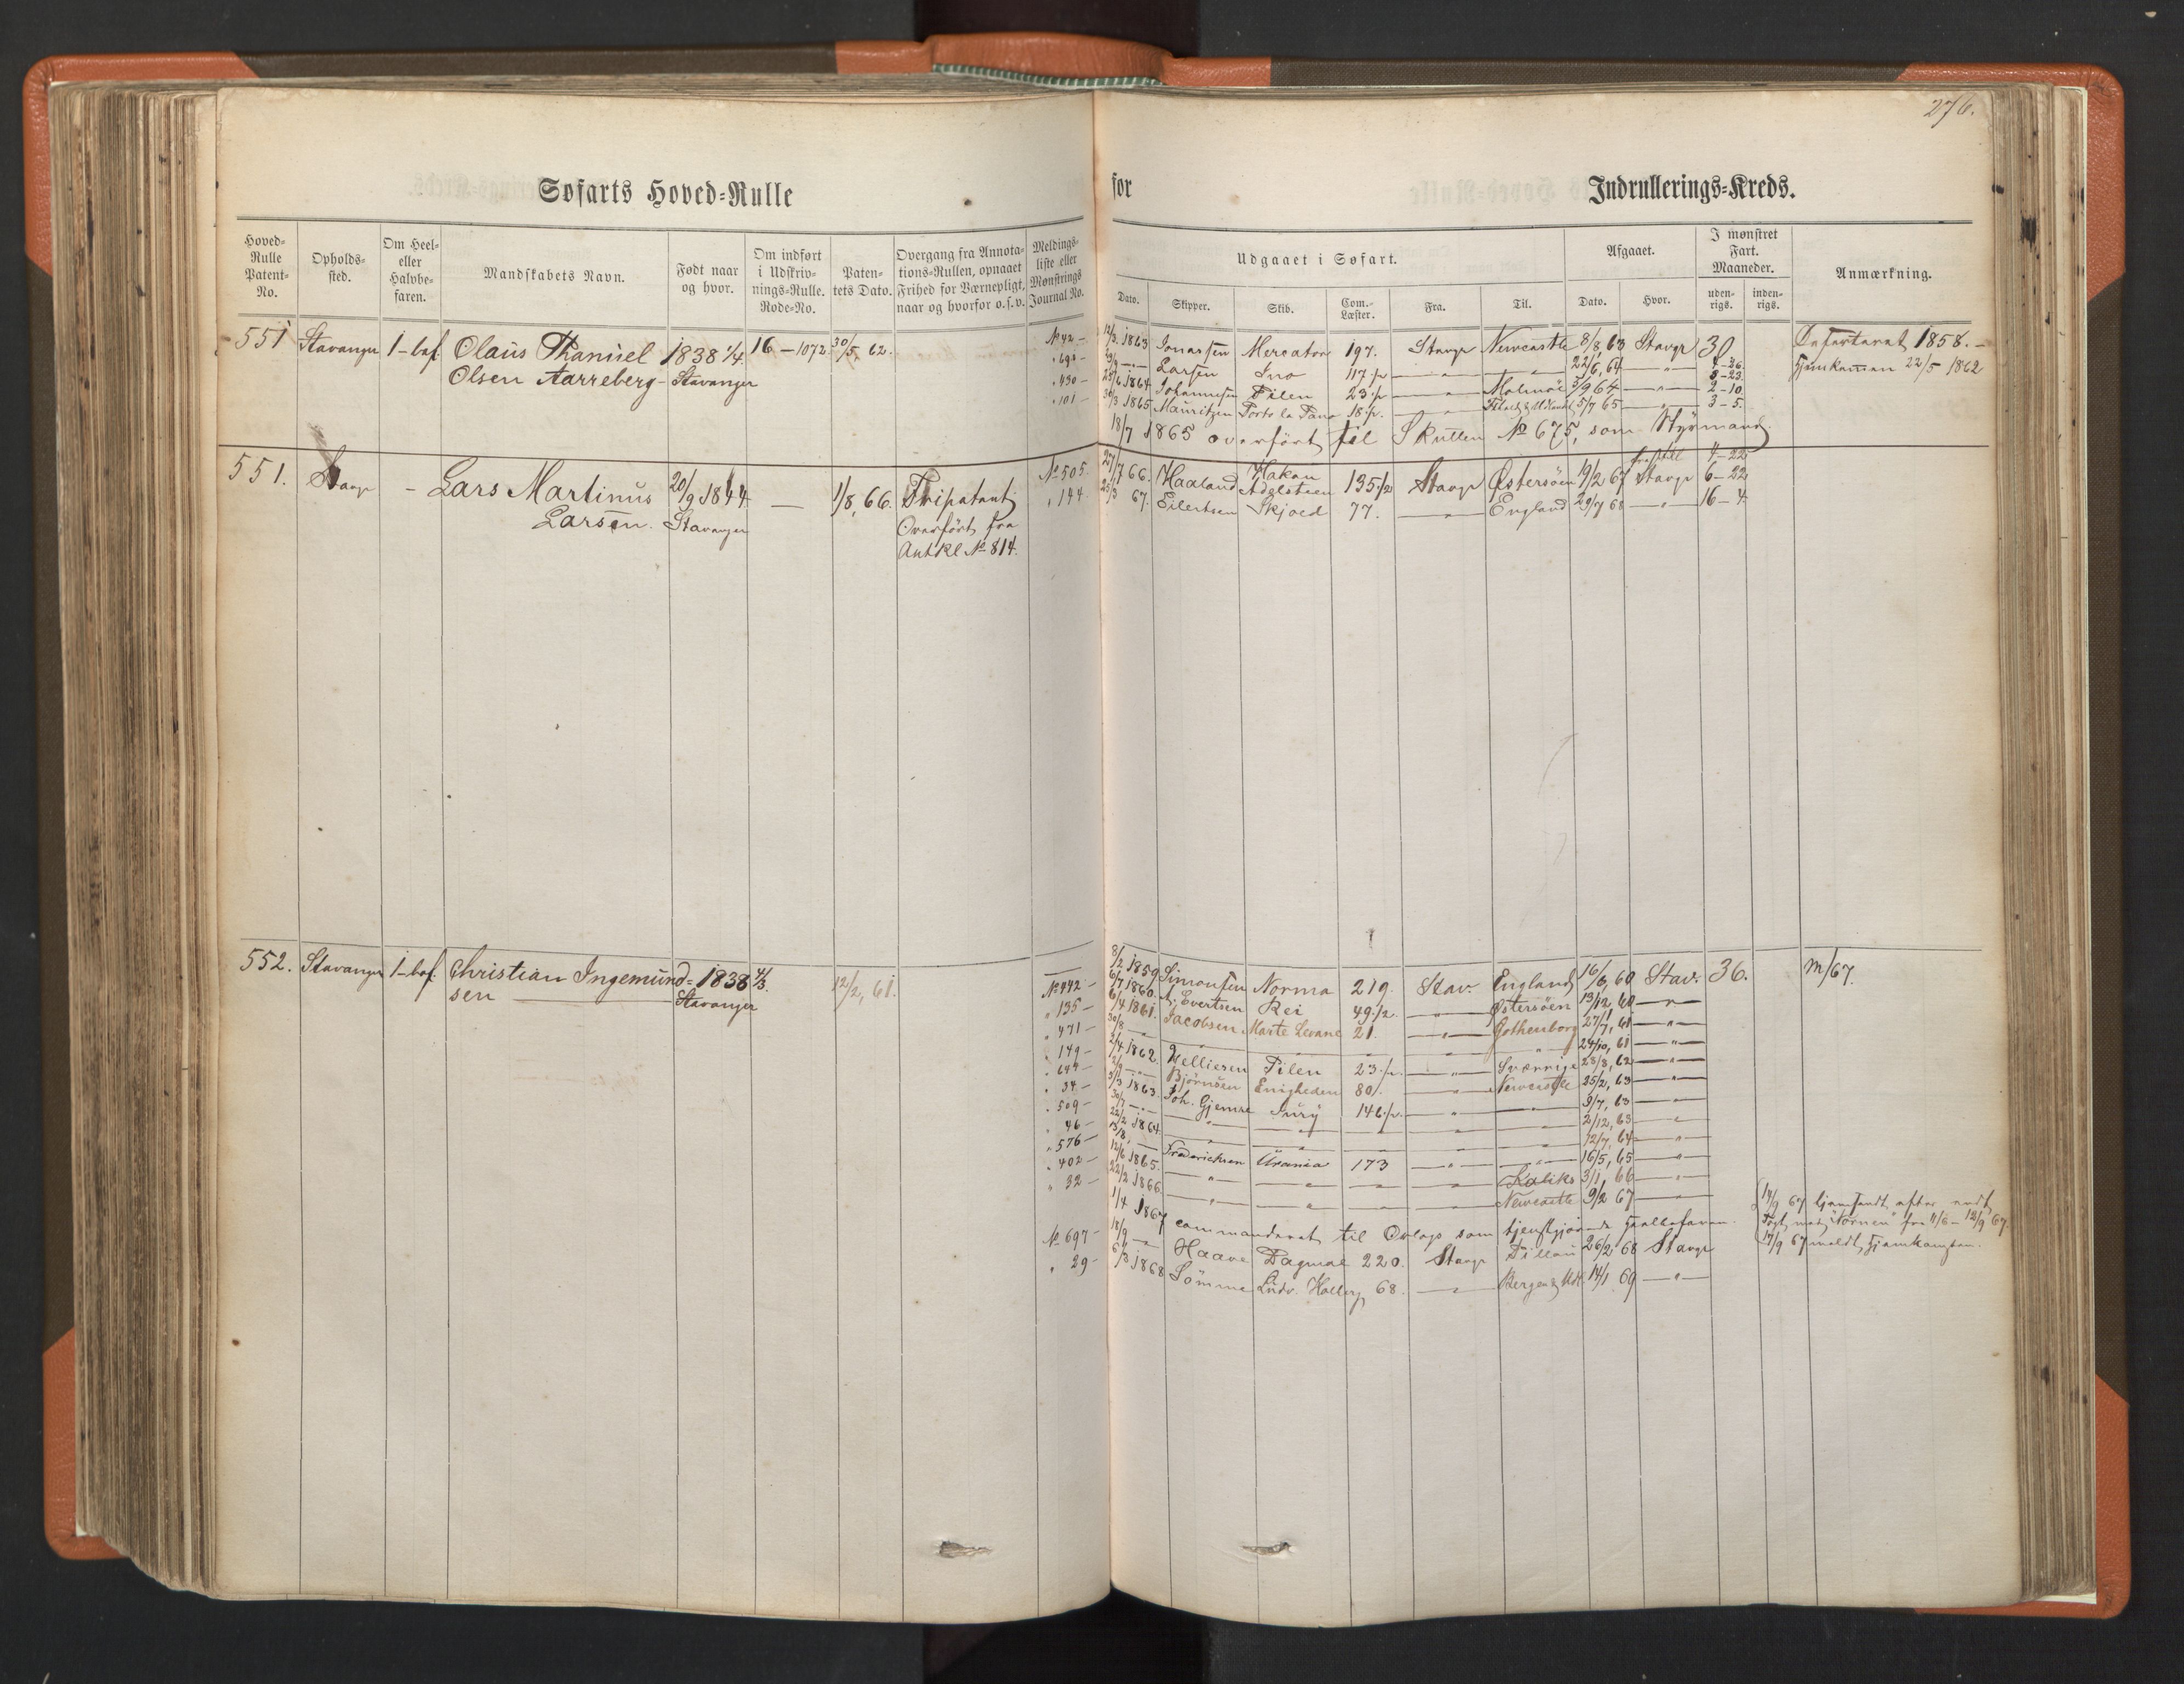 276.
Søfarts Hoved=Rulle for Indrullerings=Kreds.
Hoved=Rulle Patent=No.
Opholds=sted.
Om Heel= eller Halvbe=faren.
Mandskabets Navn.
Født naar og hvor.
Om indført i Udskriv=nings=Rulle. Rode=No.
Paten=tets Dato.
Overgang fra Annota=tions=Rullen, opnaaet Frihed for Værnepligt, naar og hvorfor o.s.v.
Meldings=liste eller Mønstrings Journal No.
Udgaaet i Søfart.
Dato. Skipper. Skib. Com.=Læster. Fra. Til.
Afgaaet.
Dato. Hvor.
I mønstret Fart. Maaneder.
uden=rigs. inden=rigs.
Anmærkning.
551 Stavanger 1-bef. Olaus Thaniel 1838 1/4 16-1072 30/5, 62. No 42- 12/3 1863 Jonassen Mercator 197. Stavgr Newcastle 8/8, 63 Stavgr 30 1858.-
Olsen Aarreberg- Stavanger " 698- Larsen Ino 117 22/6, 64 4-26 Hjemkommen 22/5 1862
" 430- 1864 Johannesen Pilen 23 Malmøe 5/9 64 2-10
" 101- 30/3 1865 Mauritzen 18 5/7 65 3-5.
18/7 1865 overført til S Rullen No 675, som Styrmand.
551. Stavgr - Lars Martinus 20/9 1844 - 1/8, 66. Fripatent No 505. 27/7 66. Haaland Hakon Adelsteen 135 Stavgr Østersøen 19/2 67 Stavgr 4-22
6-22
Larsen. Stavanger Overført fra " 144 25/3 67. Eilertsen Skjold 77. England 29/7 68 16-4
No 814.
552. Stavanger 1-bef. Christian Ingemund= 1838 4/3. 12/2, 61. 8/2 1859 Simonsen Norma 219. Stav. England 16/6, 60 Stav. 36. m/67.
sen Stavanger No 442- 6/7 1860. Evertsen Rei 49 Østersøen 13/12, 60
" 135- 6/4 1861. Jacobsen Marte Levane 21 Gothenborg 27/7, 61
" 471- 30/8 24/10, 61
" 149- 2/4 1862. Pilen 23 Sverrige 23/8, 62
" 644- 2/9 Bjørnsen Enigheden 80 Newcastle 25/2, 63
" 34- 3/3 1863. Joh. Gjemre Jury 146 9/7, 63
" 509- 30/7 2/12, 63
" 46- 22/2 1864. 12/7, 64
" 576- 13/8, Frederichsen Urania 173 16/5, 65
" 402- 12/6 1865. 3/1, 66
" 32- 22/2 1866. Newcastle 9/2 67
1/4 1867 commanderet til Orlogs som tjenstgjørende Heelbefaren.
14/9 67 hjemsendt efter endt
Togt med "Nornen" fra 11/6-12/9 67.
17/9 67 meldt Hjemkomsten
No 697- 18/9 Haave Dagmar 220. Stavgr Pillau 26/2 68 Stavgr
" 29- 6/3 1868 Sömme Ludv. Holberg 68. Bergen & Udl. 14/1 69